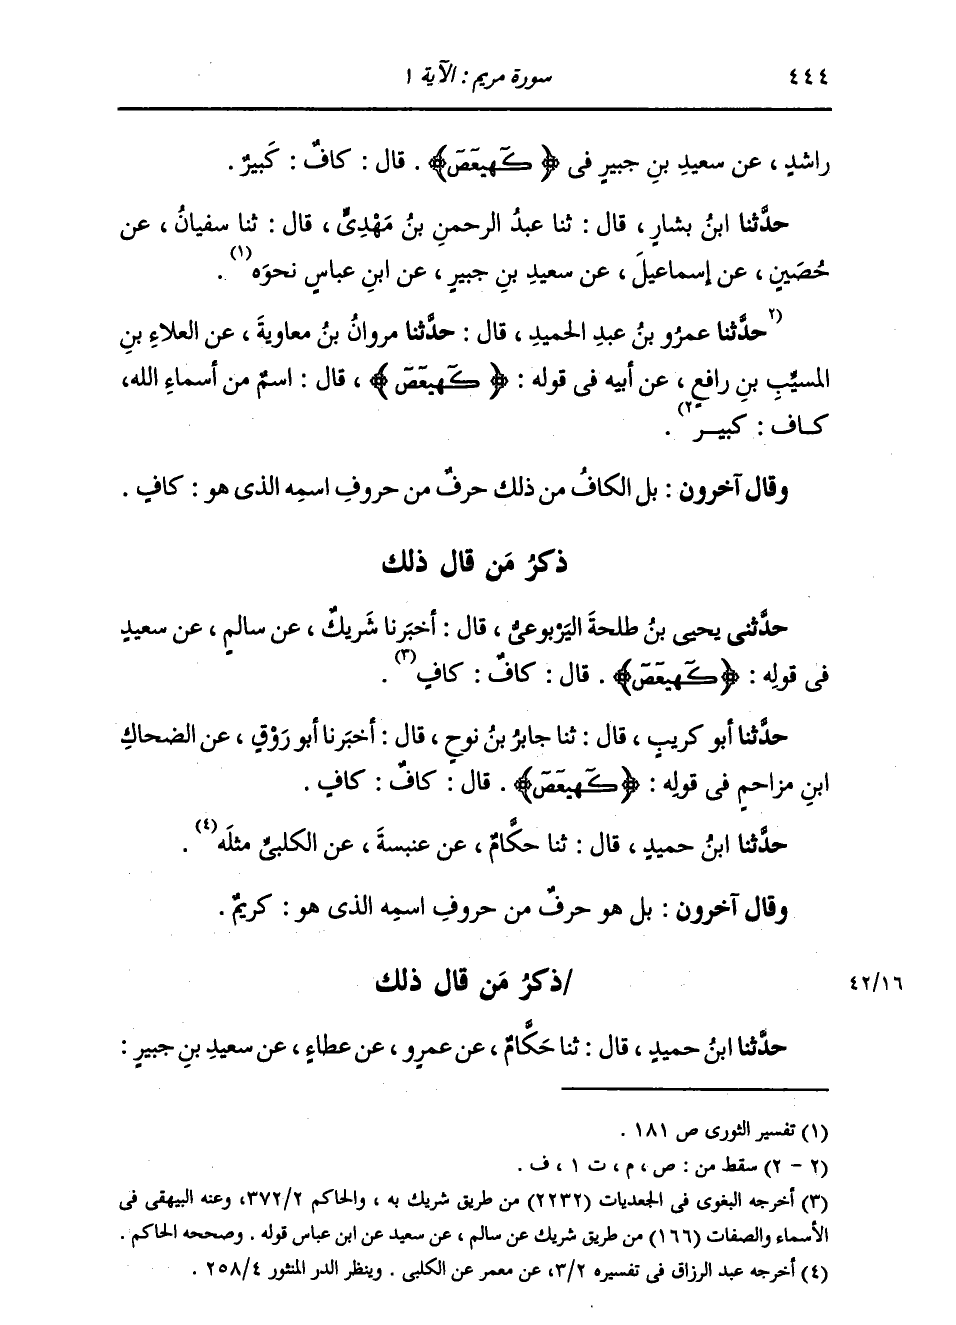 ٤٤٤ سورة مريم : الآية ١
راشدٍ ، عن سعيدِ بنِ جبيرٍ فى ﴿ كَهيعَصَ ﴾ . قال : كافٌ : كَبيرٌ .
حدَّثنا ابنُ بشارٍ ، قال : ثنا عبدُ الرحمنِ بنُ مَهْدِىٍّ ، قال : ثنا سفيانُ ، عن
حُصَينٍ ، عن إسماعيلَ ، عن سعيدِ بنِ جبيرٍ ، عن ابنِ عباسٍ نحوَه(١) .
(٢حدَّثنا عمرُو بنُ عبدِ الحميدِ ، قال : حدَّثنا مروانُ بنُ معاويةَ ، عن العلاءِ بنِ
المسيَّبِ بنِ رافعٍ ، عن أبيه فى قوله : ﴿ كَهيعَصَ ﴾ ، قال : اسمٌ من أسماءِ الله،
كـاف : كبيـر٢) .
وقال آخرون : بل الكافُ من ذلك حرفٌ من حروفِ اسمِه الذى هو : كافٍ .
ذكرُ مَن قال ذلك
حدَّثنى يحيى بنُ طلحةَ اليَرْبوعىُّ ، قال : أخبَرنا شَريكٌ ، عن سالمٍ ، عن سعيدٍ
فى قولِه : ﴿ كَهيعَصَ ﴾ . قال : كافٌ : كافٍ(٣) .
حدَّثنا أبو كريبٍ ، قال : ثنا جابرُ بنُ نوحٍ ، قال : أخبَرنا أبو رَوْقٍ ، عن الضحاكِ
ابنِ مزاحمٍ فى قولِه : ﴿ كَهيعَصَ ﴾ . قال : كافٌ : كافٍ .
حدَّثنا ابنُ حميدٍ ، قال : ثنا حكَّامٌ ، عن عنبسةَ ، عن الكلبىِّ مثلَه(٤) .
وقال آخرون : بل هو حرفٌ من حروفِ اسمِه الذى هو : كريمٌ .
٤٢/١٦ /ذكرُ مَن قال ذلك
حدَّثنا ابنُ حميدٍ ، قال : ثنا حَكَّامٌ ، عن عمرٍو ، عن عطاءٍ ، عن سعيدِ بنِ جبيرٍ :
(١) تفسير الثورى ص ١٨١ .
(٢ - ٢) سقط من : ص ، م ، ت ١ ، ف .
(٣) أخرجه البغوى فى الجعديات (٢٢٣٢) من طريق شريك به ، والحاكم ٣٧٢/٢، وعنه البيهقى فى
الأسماء والصفات (١٦٦) من طريق شريك عن سالم ، عن سعيد عن ابن عباس قوله . وصححه الحاكم .
(٤) أخرجه عبد الرزاق فى تفسيره ٣/٢، عن معمر عن الكلبى . وينظر الدر المنثور ٢٥٨/٤ .